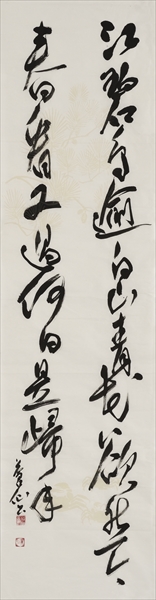 江碧鸟逾白山青花欲然
春看又過何日是歸年